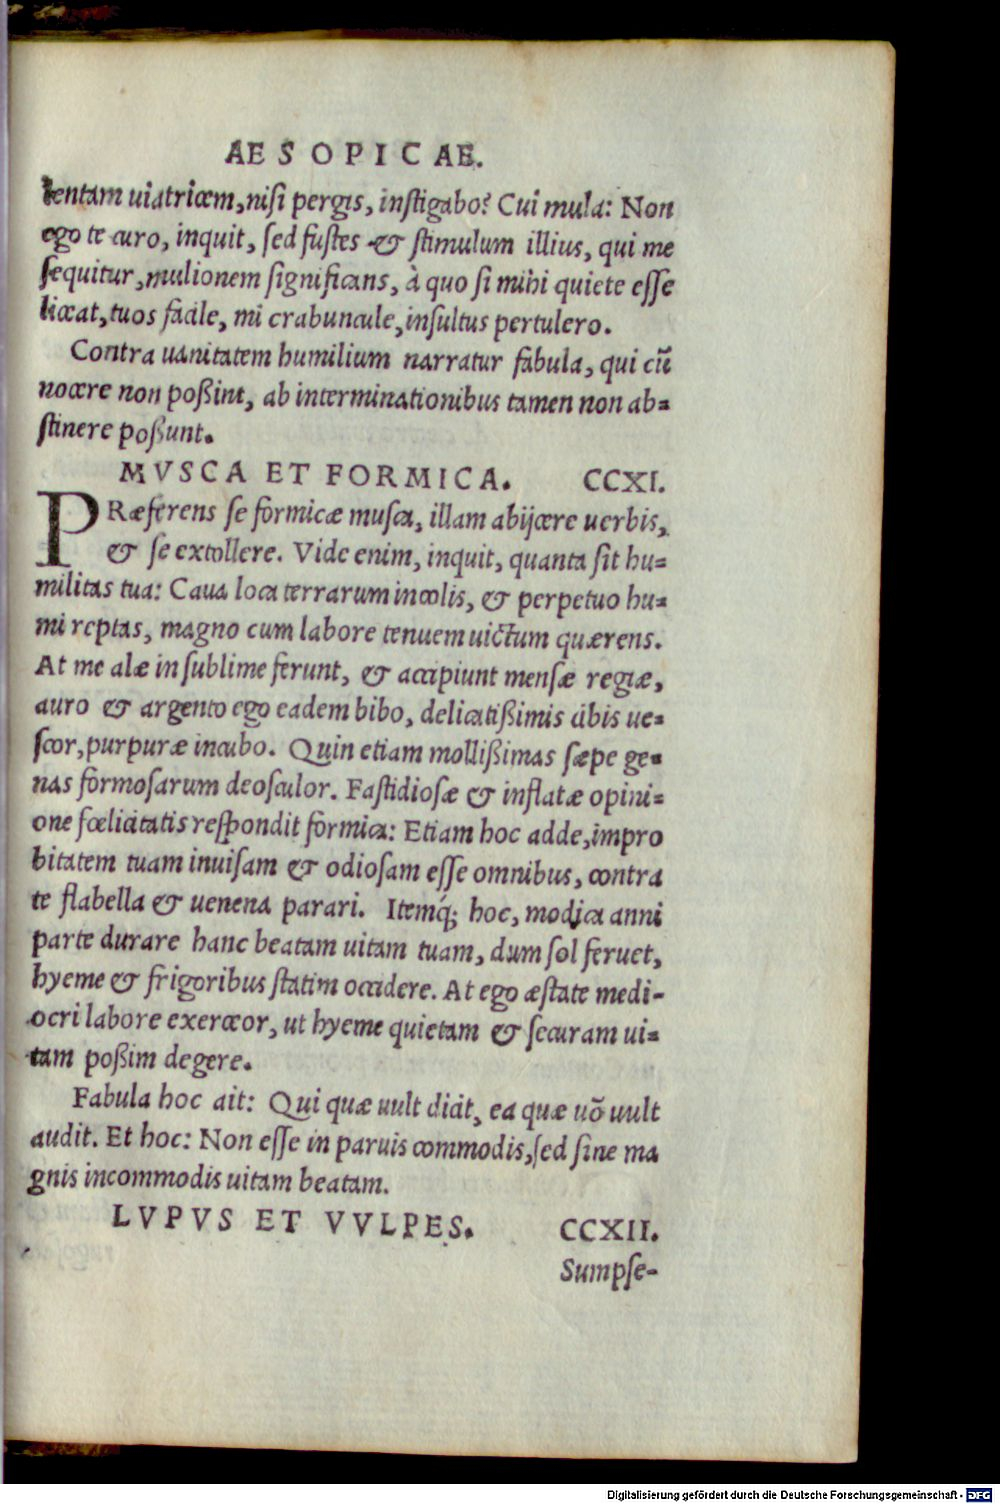 AESOPICAE.
lentam uiatricem, nisi pergis, instigabo? Cui mula: Non
ego te curo, inquit, sed fustes & stimulum illius, qui me
sequitur, mulionem significans, à quo si mihi quiete esse
liceat, tuos facile, mi crabuncule, insultus pertulero.
Contra uanitatem humilium narratur fabula, qui cũ
nocere non poßint, ab interminationibus tamen non ab=
stinere poßunt.
MVSCA ET FORMICA. CCXI.
PRæferens se formicæ musca, illam abijcere uerbis,
& se extollere. Vide enim, inquit, quanta sit hu=
militas tua: Caua loca terrarum incolis, & perpetuo hu=
mi reptas, magno cum labore tenuem uictum quærens.
At me alæ in sublime ferunt, & accipiunt mensæ regiæ,
auro & argento ego eadem bibo, delicatißimis cibis ue=
scor, purpuræ incubo. Quin etiam mollißimas sæpe ge=
nas formosarum deosculor. Fastidiosæ & inflatæ opini=
one fœlicitatis respondit formica: Etiam hoc adde, impro
bitatem tuam inuisam & odiosam esse omnibus, contra
te flabella & uenena parari. Itemq́; hoc, modica anni
parte durare hanc beatam uitam tuam, dum sol feruet,
hyeme & frigoribus statim occidere. At ego æstate medi-
ocri labore exerceor, ut hyeme quietam & securam ui=
tam poßim degere.
Fabula hoc ait: Qui quæ uult dicit, ea quæ uõ uult
audit. Et hoc: Non esse in paruis commodis, sed sine ma
gnis incommodis uitam beatam.
LVPVS ET VVLPES. CCXII.
Sumpse-
Digitalisierung gefördert durch die Deutsche Forschungsgemeinschaft - DFG